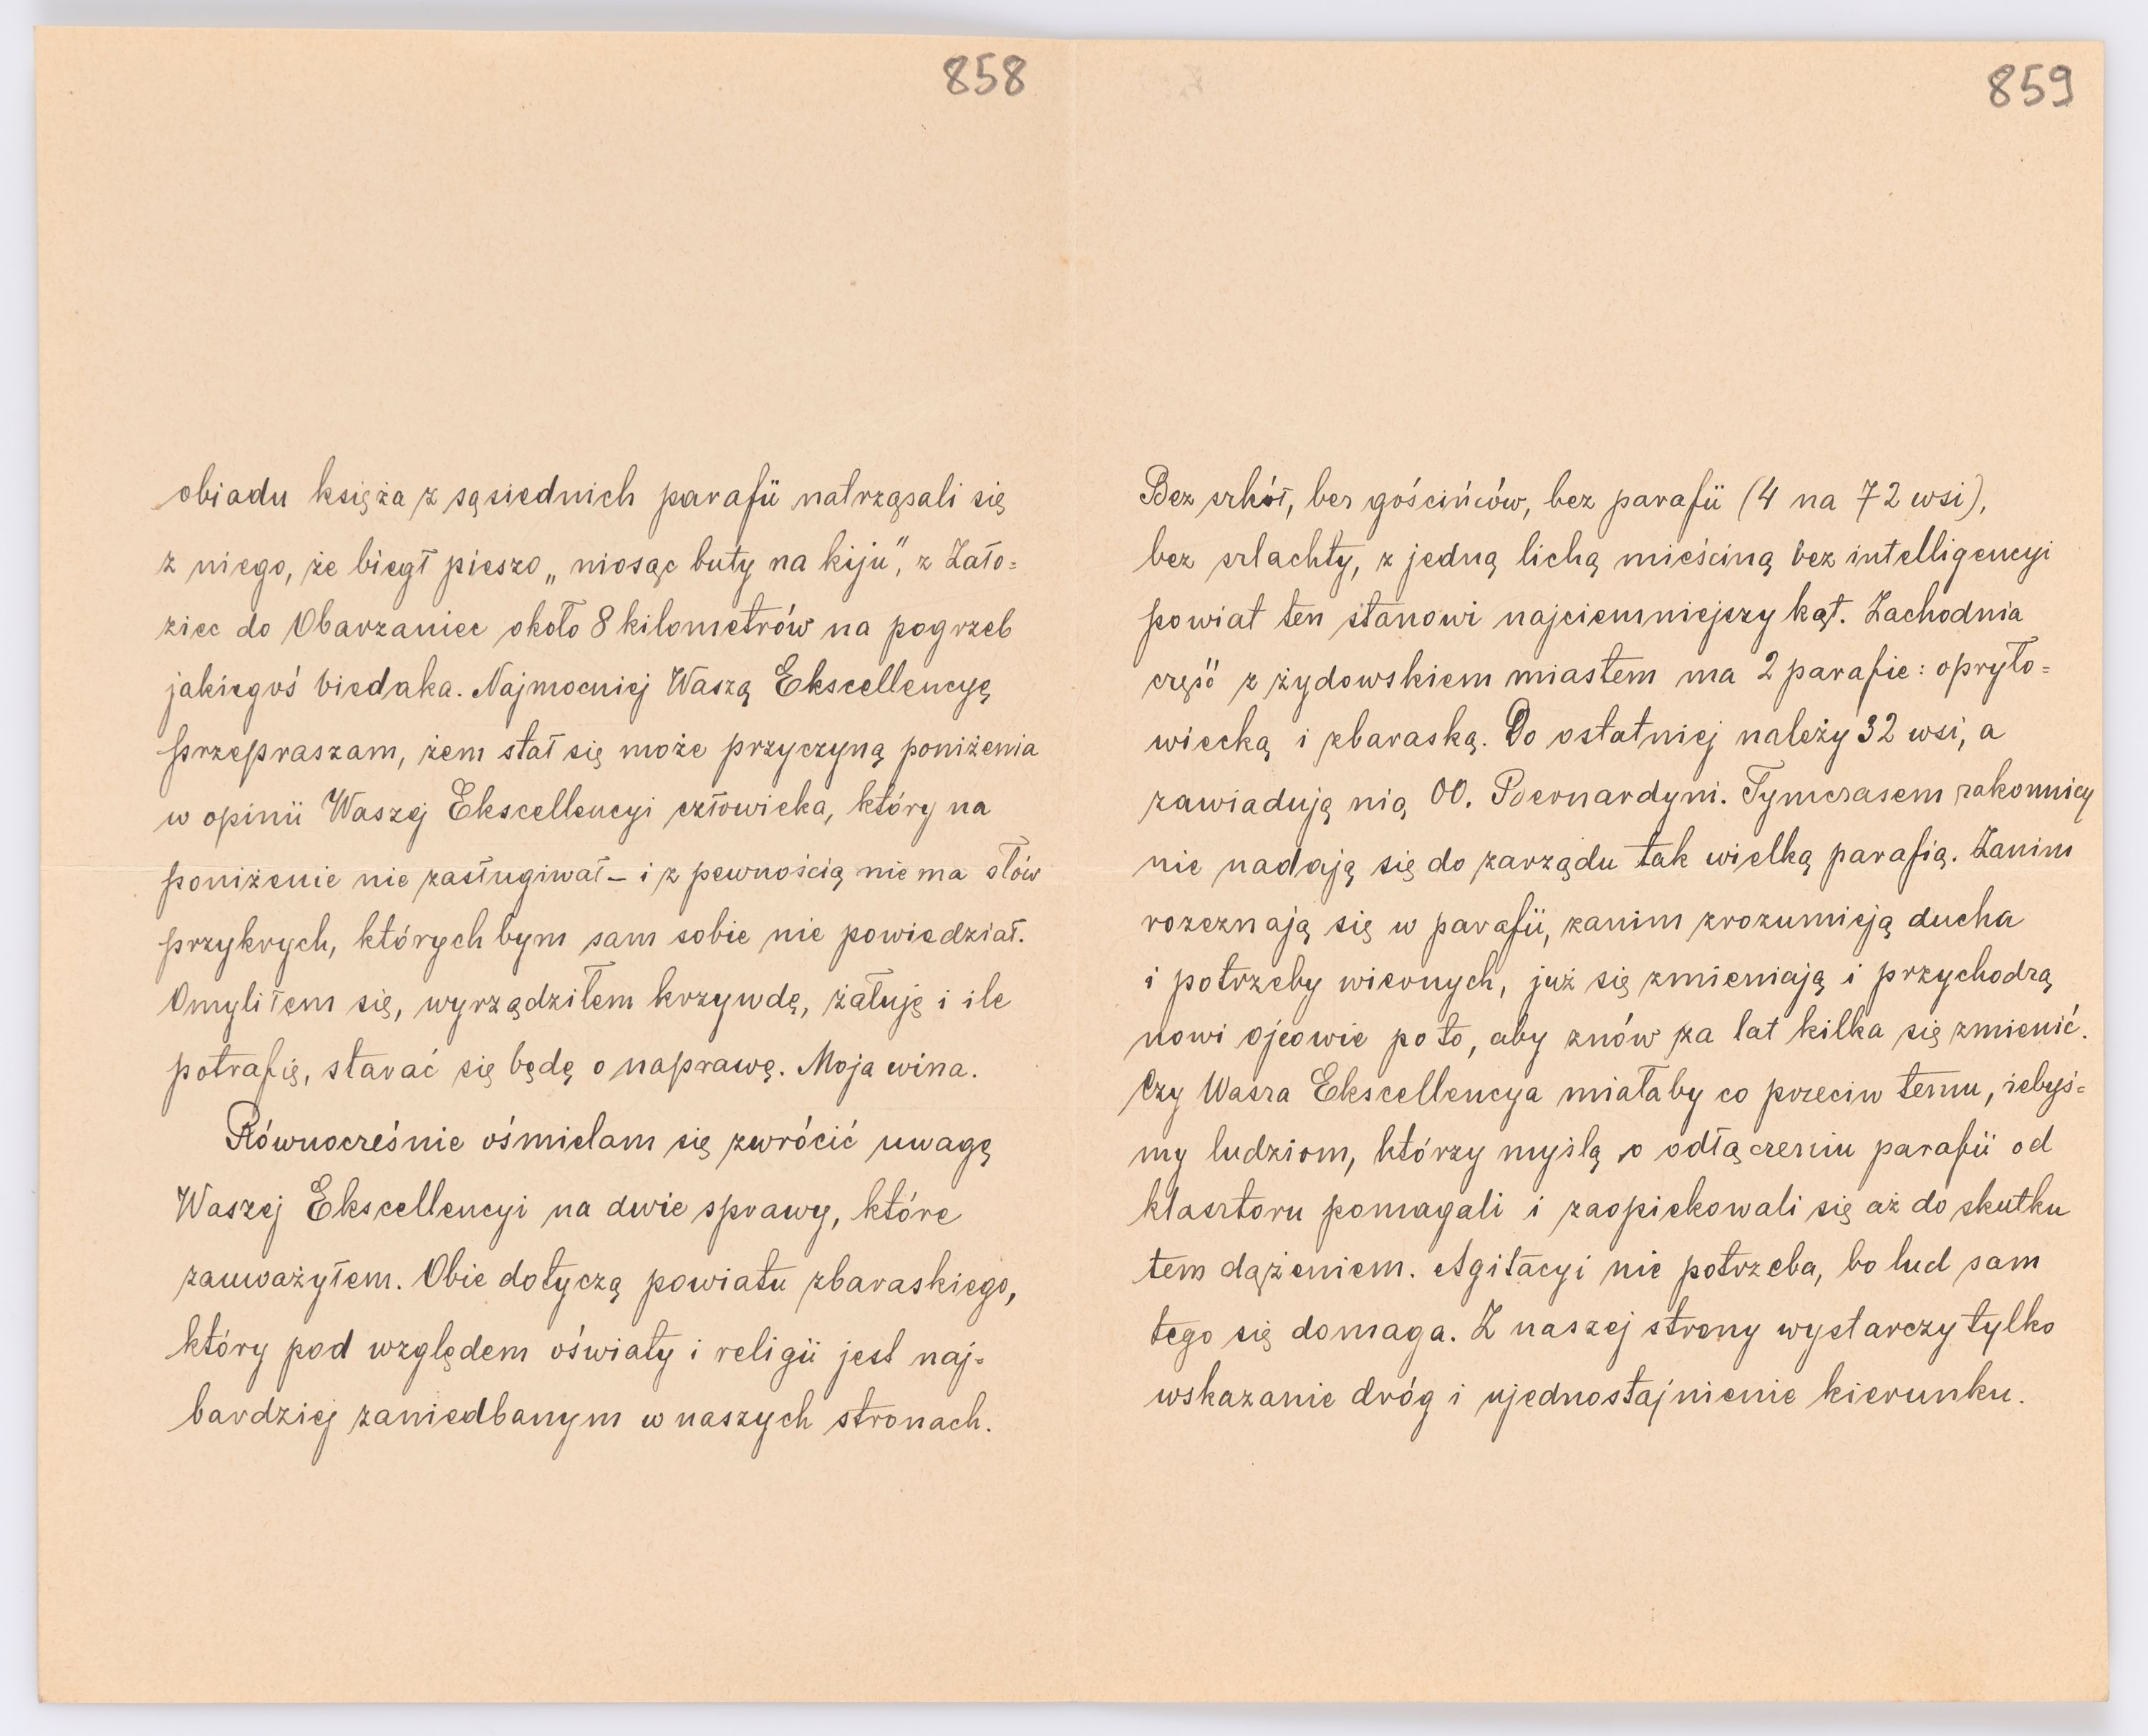 858
obiadu księża z sąsiednich parafii natrząsali się
z niego, że biegł pieszo „niosąc buty na kiju", z Zało=
ziec do Obarzaniec około 8 kilometrów na pogrzeb
jakiegoś biedaka. Najmocniej Waszą Ekscellencyę
przepraszam, żem stał się może przyczyną poniżenia
w opinii Waszej Ekscellencyi człowieka, który na
poniżenie nie zasługiwał – i z pewnością nie ma słów
przykrych, których bym sam sobie nie powiedział.
Omyliłem się, wyrządziłem krzywdę, żałuję i ile
potrafię, starać się będę o naprawę. Moja wina.
Równocześnie ośmielam się zwrócić uwagę
Waszej Ekscellencyi na dwie sprawy, które
zauważyłem. Obie dotyczą powiatu zbaraskiego,
który pod względem oświaty i religii jest naj=
bardziej zaniedbanym w naszych stronach.
859
Bez szkół, bez gościńców, bez parafii (4 na 72 wsi),
bez szlachty, z jedną lichą mieściną bez intelligencyi
powiat ten stanowi najciemniejszy kąt. Zachodnia
część z żydowskiem miastem ma 2 parafie: opryło=
wiecką i zbaraską. Do ostatniej należy 32 wsi, a
zawiadują nią OO. Bernardyni. Tymczasem zakonnicy
nie nadają się do zarządu tak wielką parafią. Zanim
rozeznają się w parafii, zanim zrozumieją ducha
i potrzeby wiernych, już się zmieniają i przychodzą
nowi ojcowie po to, aby znów za lat kilka się zmienić.
Czy Wasza Ekscellencya miałaby co przeciw temu, żebyś=
my ludziom, którzy myślą o odłączeniu parafii od
klasztoru pomagali i zaopiekowali się aż do skutku
tem dążeniem. Agitacyi nie potrzeba, bo lud sam
tego się domaga. Z naszej strony wystarczy tylko
wskazanie dróg i ujednostajnienie kierunku.